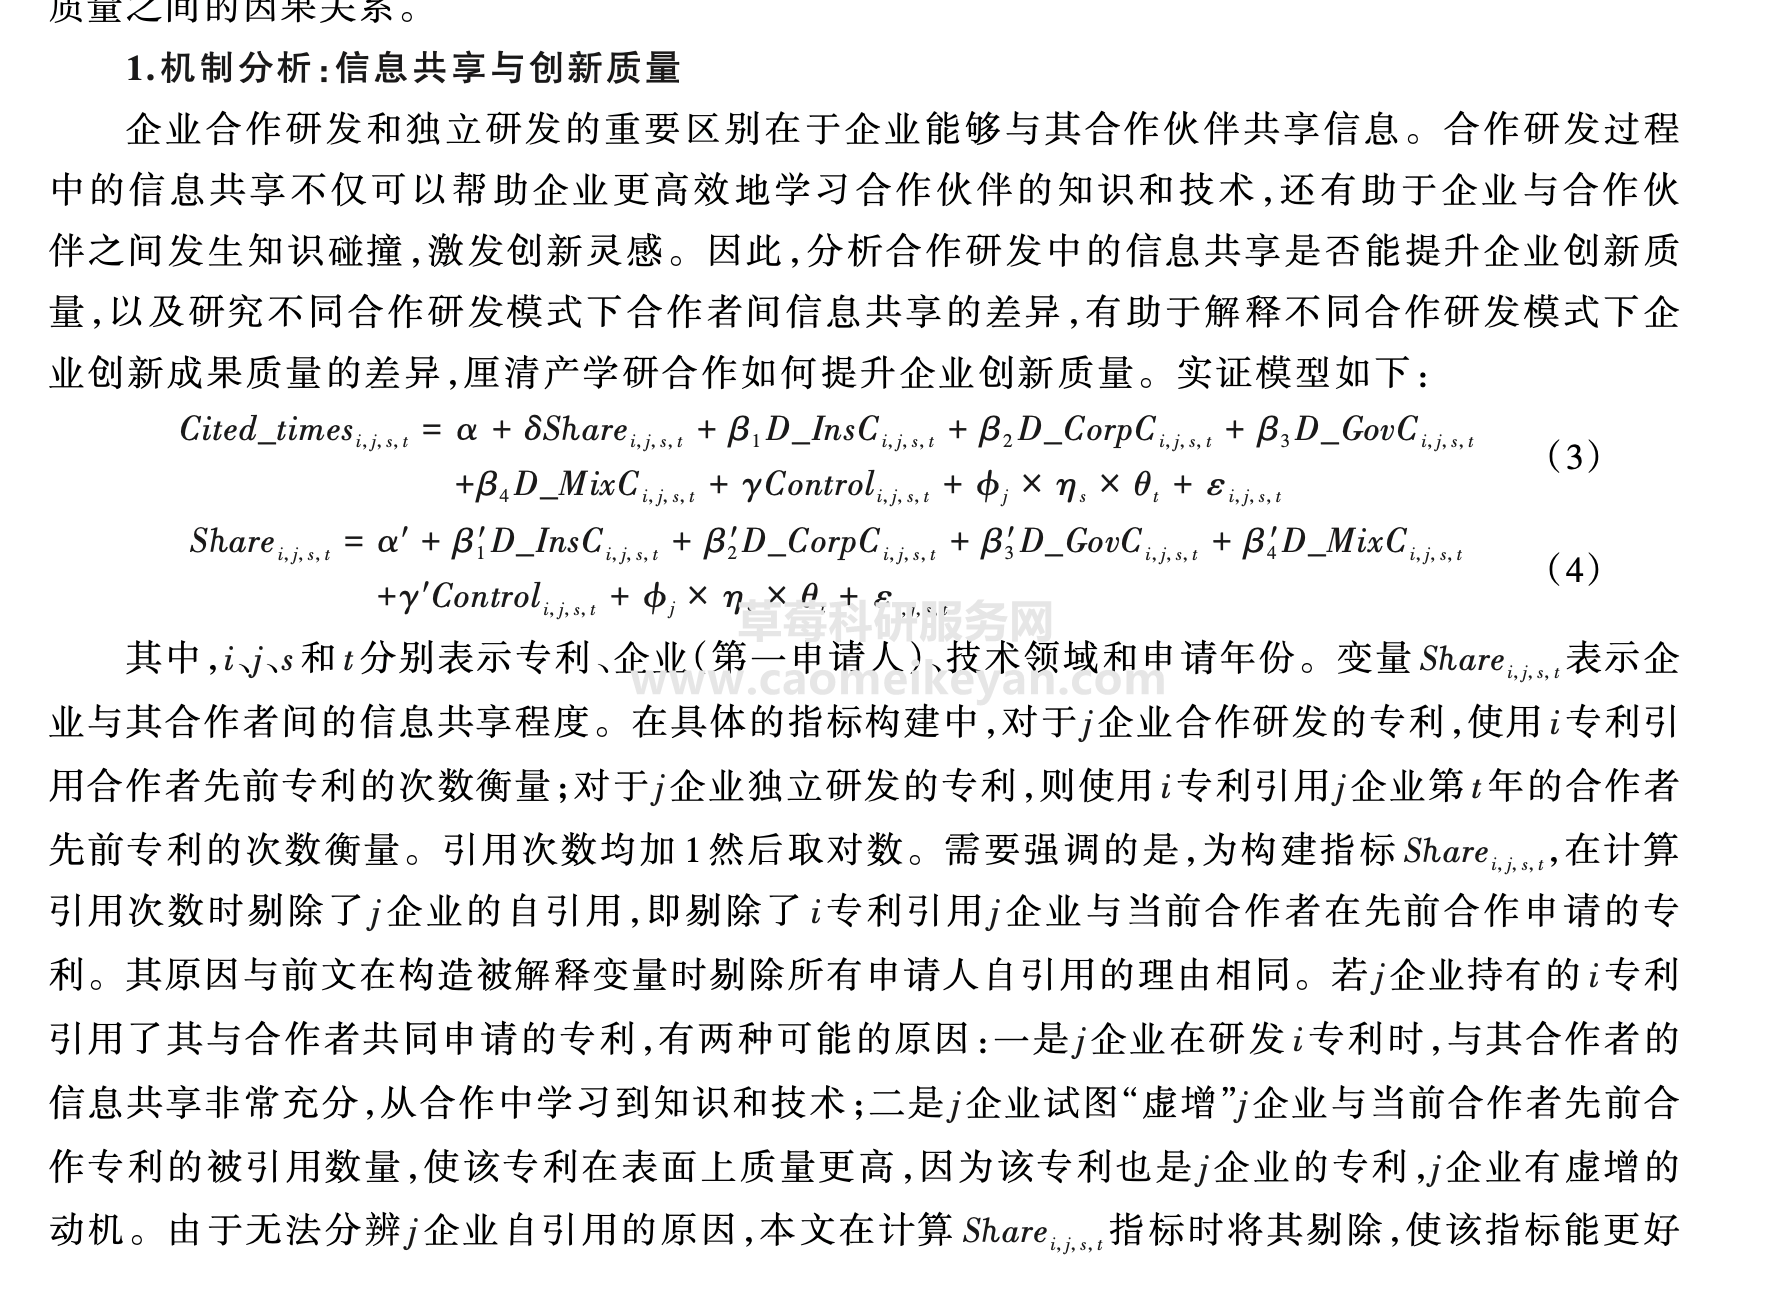 质量之间的因果关系。
1.机制分析:信息共享与创新质量
企业合作研发和独立研发的重要区别在于企业能够与其合作伙伴共享信息。合作研发过程
中的信息共享不仅可以帮助企业更高效地学习合作伙伴的知识和技术,还有助于企业与合作伙
伴之间发生知识碰撞,激发创新灵感。因此,分析合作研发中的信息共享是否能提升企业创新质
量,以及研究不同合作研发模式下合作者间信息共享的差异,有助于解释不同合作研发模式下企
业创新成果质量的差异,厘清产学研合作如何提升企业创新质量。实证模型如下:
Cited_times_{i,j,s,t} = α + δShare_{i,j,s,t} + β_1D_InsC_{i,j,s,t} + β_2D_CorpC_{i,j,s,t} + β_3D_GovC_{i,j,s,t}
+β_4D_MixC_{i,j,s,t} + γControl_{i,j,s,t} + φ_j × η_s × θ_t + ε_{i,j,s,t} (3)
Share_{i,j,s,t} = α′ + β′_1D_InsC_{i,j,s,t} + β′_2D_CorpC_{i,j,s,t} + β′_3D_GovC_{i,j,s,t} + β′_4D_MixC_{i,j,s,t}
+γ′Control_{i,j,s,t} + φ_j × η_s × θ_t + ε_{i,j,s,t} (4)
草莓科研服务网
其中,i、j、s和t分别表示专利、企业(第一申请人)、技术领域和申请年份。变量Share_{i,j,s,t}表示企
www.caomeikeyan.com
业与其合作者间的信息共享程度。在具体的指标构建中,对于j企业合作研发的专利,使用i专利引
用合作者先前专利的次数衡量;对于j企业独立研发的专利,则使用i专利引用j企业第t年的合作者
先前专利的次数衡量。引用次数均加1然后取对数。需要强调的是,为构建指标Share_{i,j,s,t},在计算
引用次数时剔除了j企业的自引用,即剔除了i专利引用j企业与当前合作者在先前合作申请的专
利。其原因与前文在构造被解释变量时剔除所有申请人自引用的理由相同。若j企业持有的i专利
引用了其与合作者共同申请的专利,有两种可能的原因:一是j企业在研发i专利时,与其合作者的
信息共享非常充分,从合作中学习到知识和技术;二是j企业试图“虚增”j企业与当前合作者先前合
作专利的被引用数量,使该专利在表面上质量更高,因为该专利也是j企业的专利,j企业有虚增的
动机。由于无法分辨j企业自引用的原因,本文在计算Share_{i,j,s,t}指标时将其剔除,使该指标能更好